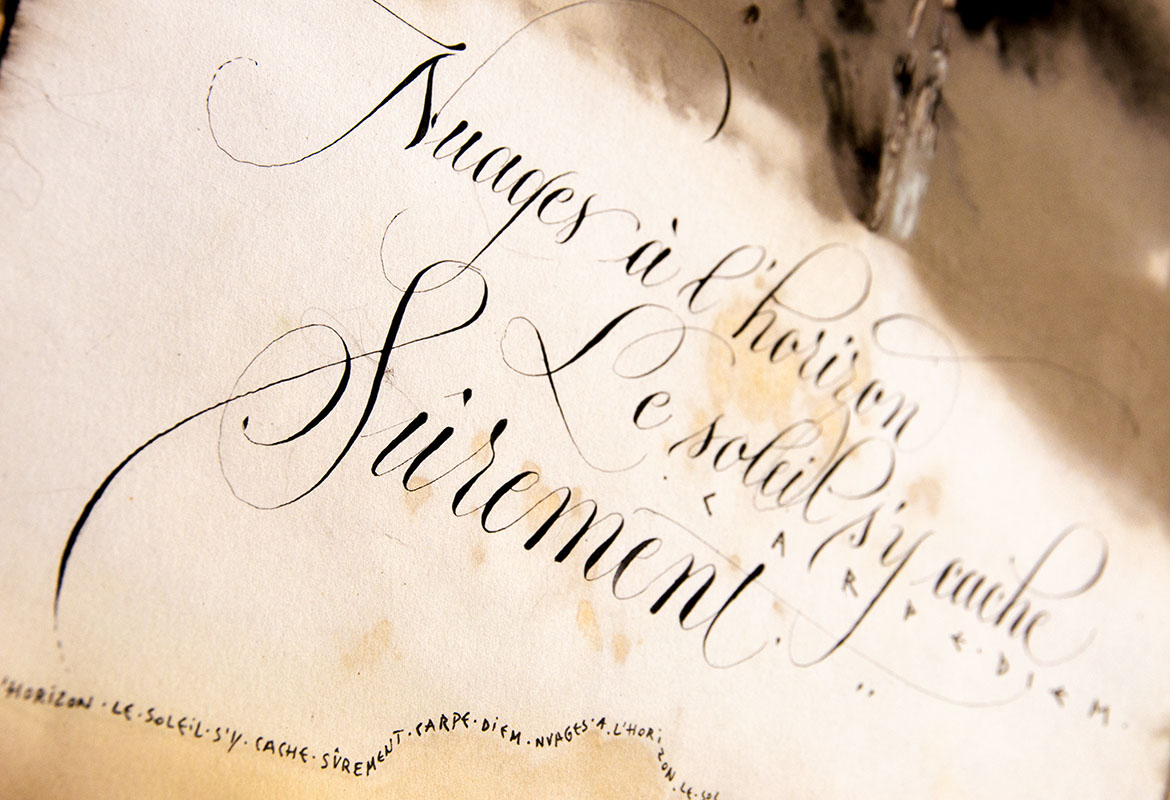 Nuages à l'horizon
Le soleil s'y cache
Sûrement.
· CARPE · DIEM ·
'HORIZON · LE · SOLEIL · S'Y · CACHE · SÛREMENT · CARPE · DIEM · NUAGES · A · L'HORIZON · LE · SOL